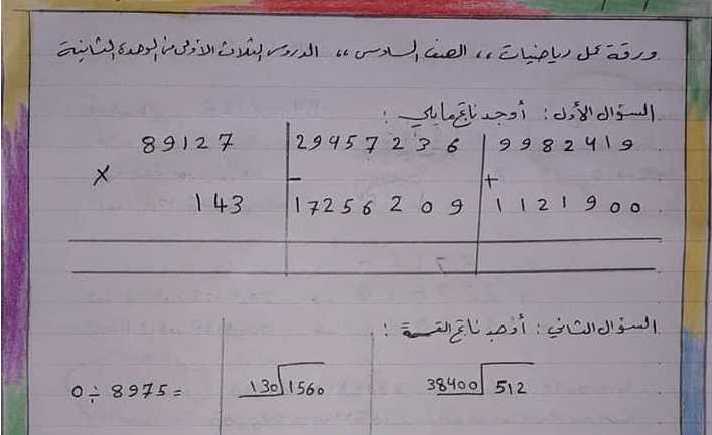 ورقة عمل رياضيات ،، الصف السادس ،، الدروس الثلاث الأولى من الوحدة الثانية
السؤال الأول : أوجد ناتج مايلي :
89127 29457236 9982419
× - +
143 17256209 1121900
السؤال الثاني : أوجد ناتج القسمة :
0 ÷ 8975 = 130 1560 38400 512